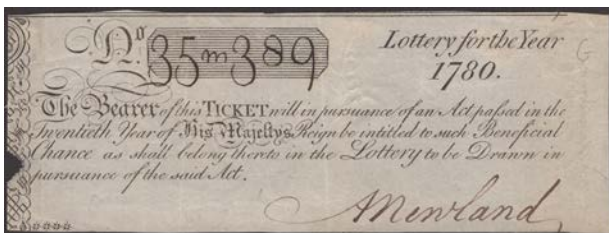 No. 35m389
Lottery for the Year
1780.
The Bearer of this TICKET will in pursuance of an Act passed in the
Twentieth Year of His Majestys Reign be intitled to such Beneficial
Chance as shall belong thereto in the Lottery to be Drawn in
pursuance of the said Act.
A Newland